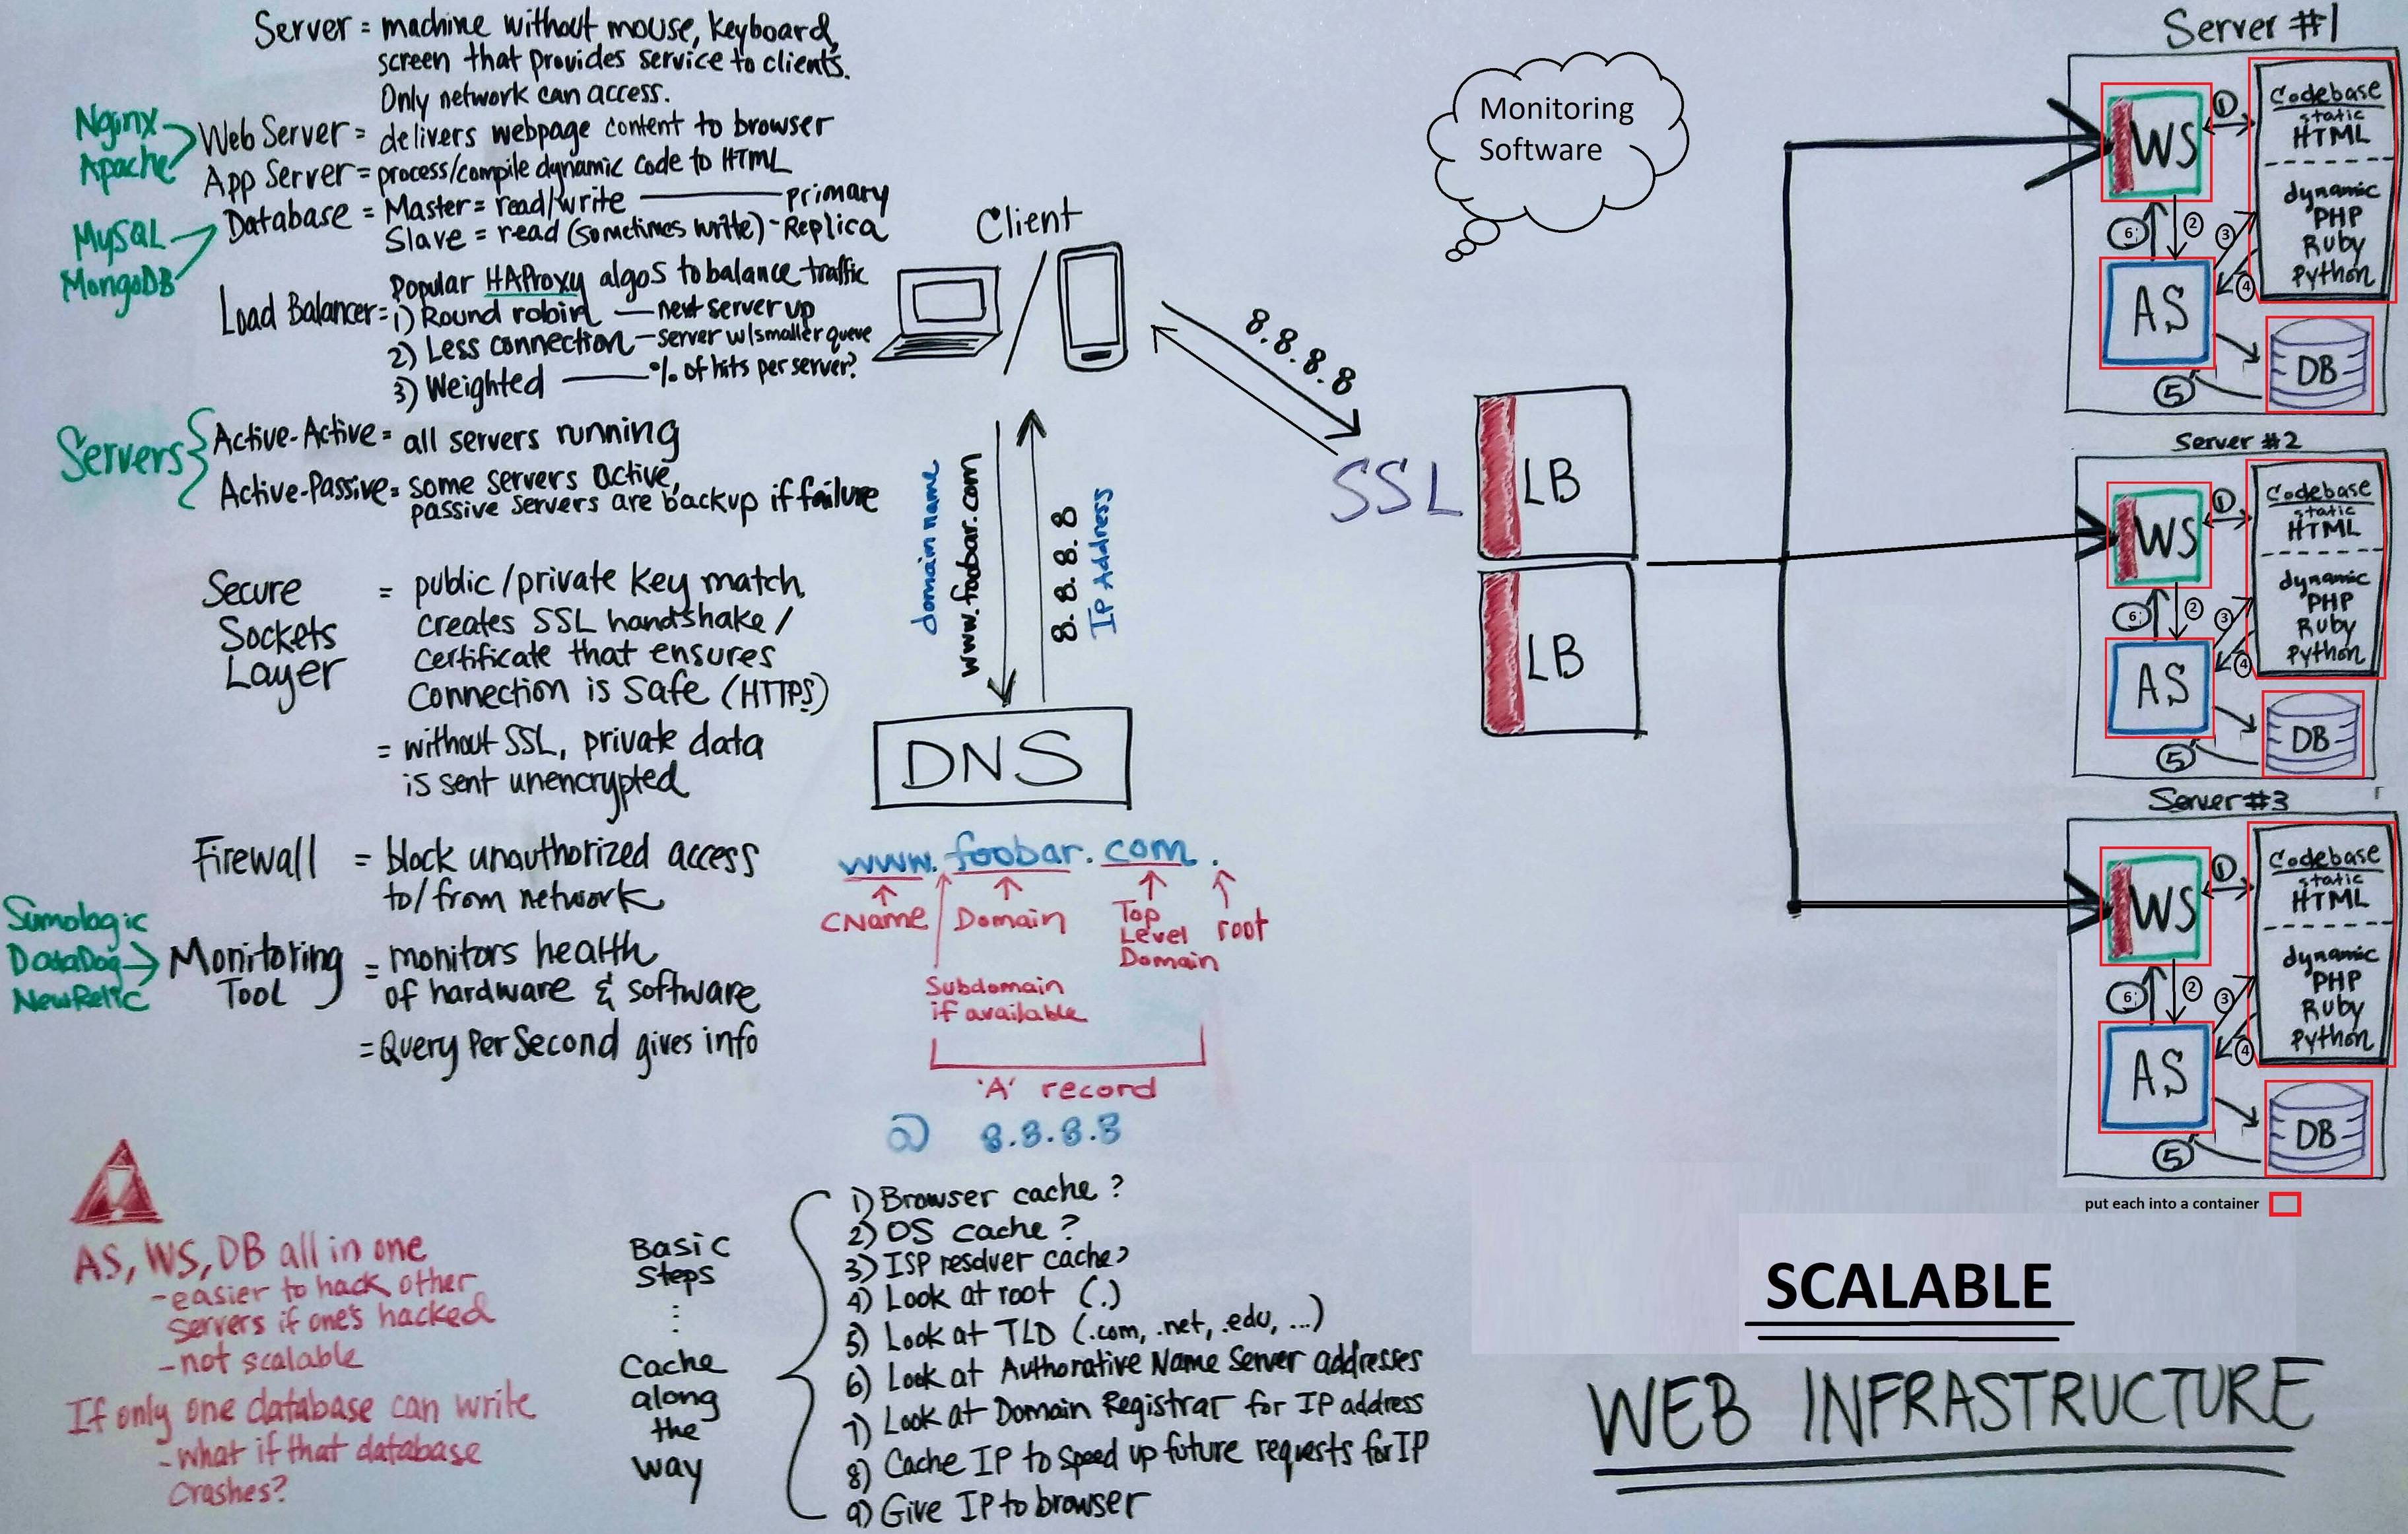 Server = machine without mouse, keyboard,
screen that provides service to clients.
Only network can access.
Nginx
Apache
Web Server = delivers webpage content to browser
App Server = process/compile dynamic code to HTML
MySQL
MongoDB
Database = Master = read/write — primary
Slave = read (sometimes write) - Replica
Load Balancer = Popular HAProxy algos to balance traffic
1) Round robin — next server up
2) Less connection — server w/smaller queue
3) Weighted — % of hits per server?
Servers
Active-Active = all servers running
Active-Passive = some servers active,
passive servers are backup if failure
Secure
Sockets
Layer
= public/private key match,
creates SSL handshake/
certificate that ensures
connection is safe (HTTPS)
= without SSL, private data
is sent unencrypted
Firewall = block unauthorized access
to/from network
Sumologic
DataDog
NewRelic
Monitoring
Tool
= monitors health
of hardware & software
= Query Per Second gives info
AS, WS, DB all in one
- easier to hack other
servers if one's hacked
- not scalable
If only one database can write
- what if that database
crashes?
Client
domain name
www.foobar.com
8.8.8.8
IP Address
DNS
www.foobar.com.
CName
Domain
Top
Level
Domain
root
Subdomain
if available
'A' record
@ 8.8.8.8
Basic
Steps
⋮
Cache
along
the
way
1) Browser cache?
2) OS cache?
3) ISP resolver cache?
4) Look at root (.)
5) Look at TLD (.com, .net, .edu, ...)
6) Look at Authorative Name Server addresses
7) Look at Domain Registrar for IP address
8) Cache IP to speed up future requests for IP
9) Give IP to browser
Monitoring
Software
8.8.8.8
SSL
LB
LB
Server #1
WS
1
Codebase
static
HTML
dynamic
PHP
Ruby
Python
6
2
3
4
AS
5
DB
Server #2
WS
1
Codebase
static
HTML
dynamic
PHP
Ruby
Python
6
2
3
4
AS
5
DB
Server #3
WS
1
Codebase
static
HTML
dynamic
PHP
Ruby
Python
6
2
3
4
AS
5
DB
put each into a container
SCALABLE
WEB INFRASTRUCTURE